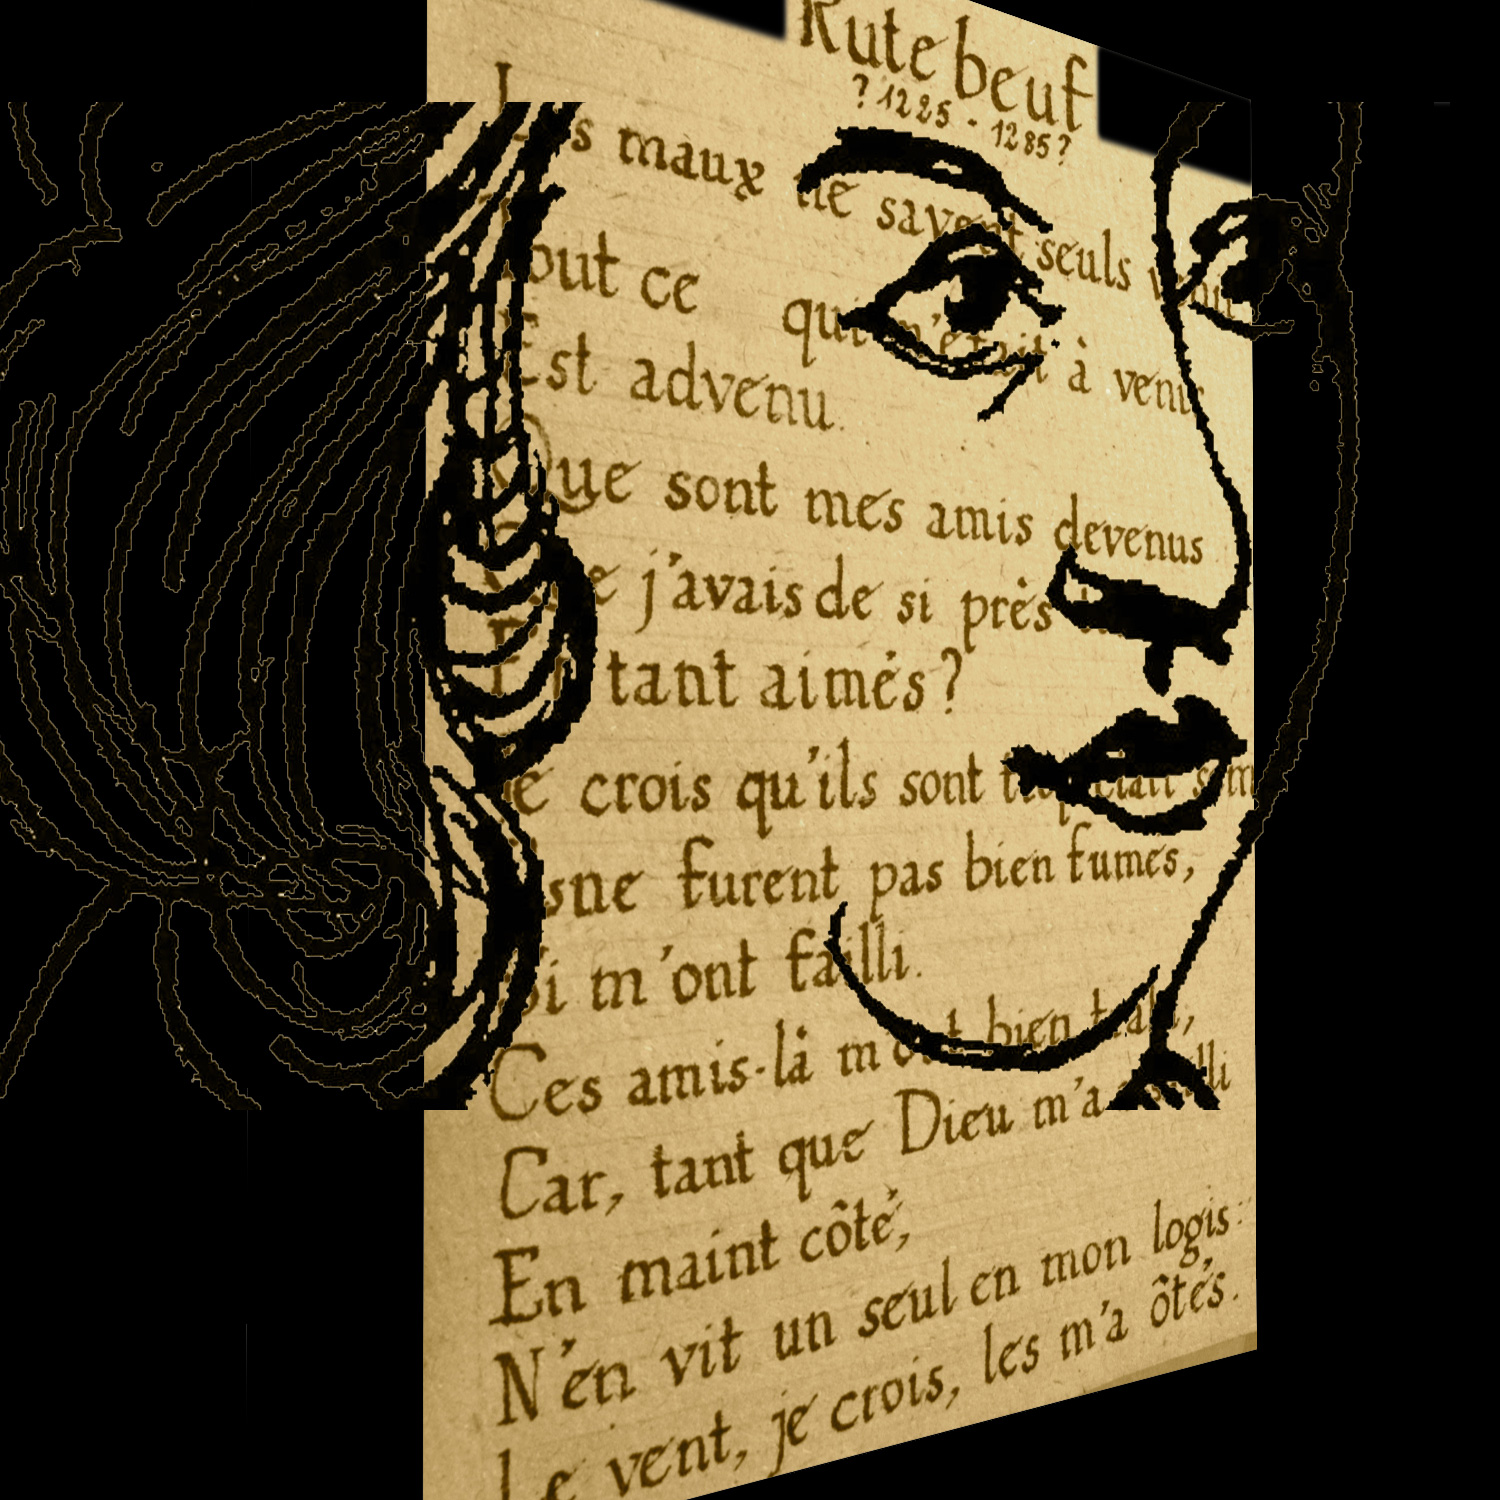 Rutebeuf
? 1225 - 1285 ?
maux ne savent seuls venir
Tout ce qui m'était à venir
Est advenu.
Que sont mes amis devenus
j'avais de si près
tant aimés ?
Je crois qu'ils sont
ne furent pas bien fumés,
Si m'ont failli.
Ces amis-là m'ont bien trahi,
Car, tant que Dieu m'a assailli
En maint côté,
N'en vit un seul en mon logis :
Le vent, je crois, les m'a ôtés.